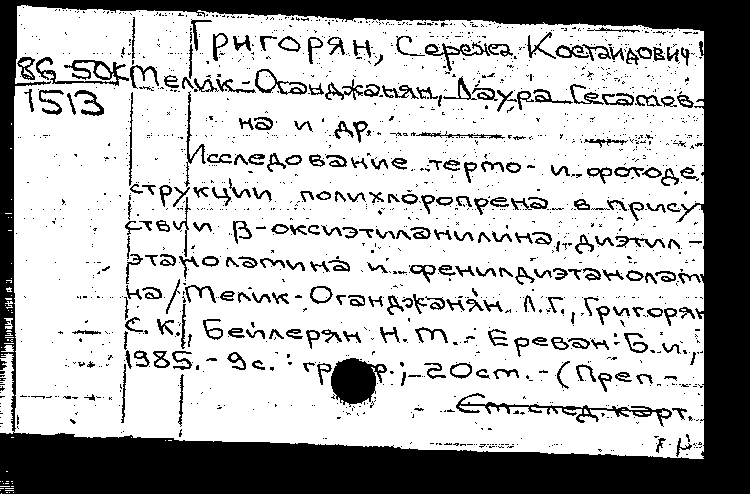 Григорян, Сережа Костаидович
86-50К
1513
Мелик-Оганджанян, Лаура Гегамов-
на и др.
Исследование термо- и фотоде-
струкции полихлоропрена в прису
ствии β-оксиэтиланилина, диэтил-
этаноламина и фенилдиэтанолам
на / Мелик-Оганджанян Л.Г., Григорян
С.К., Бейлерян Н.М. - Ереван: Б.и.,
1985. - 9 с. : гр р.; 20 см. - (Преп -
См. след. карт.